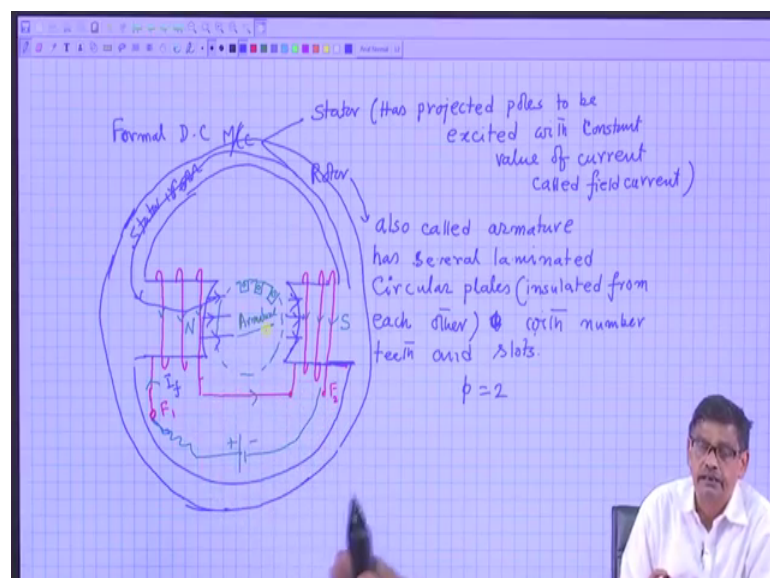 Formal D.C M/c
Stator (Has projected poles to be
excited with constant
value of current
called field current)
Rotor
also called armature
has several laminated
Circular plates (insulated from
each other) with number
teeth and slots.
p = 2
Stator
N
Armature
S
If
F1
F2
+ -